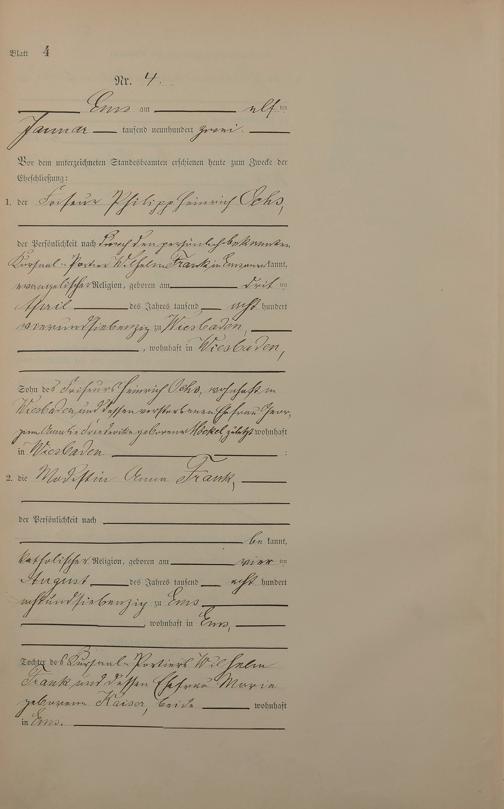 Blatt 4
Nr. 4.
Ems am elf ten
Januar tausend neunhundert zwei.
Vor dem unterzeichneten Standesbeamten erschienen heute zum Zwecke der
Eheschließung:
1. der Friseur Philipp Heinrich Ochs,
der Persönlichkeit nach durch den persönlich bekannten
Kursaal-Portier Wilhelm Frank in Ems anerkannt,
evangelischer Religion, geboren am dritten
April des Jahres tausend acht hundert
vierundsiebenzig zu Wiesbaden,
, wohnhaft in Wiesbaden,
Sohn des Friseurs Heinrich Ochs, wohnhaft in
Wiesbaden und dessen verstorbenen Ehefrau
geborener zuletzt wohnhaft
in Wiesbaden :
2. die Modistin Anna Frank,
der Persönlichkeit nach
bekannt,
katholischer Religion, geboren am vierten
August des Jahres tausend acht hundert
achtundsiebenzig zu Ems
, wohnhaft in Ems,
Tochter des Kursaal-Portiers Wilhelm
Frank und dessen Ehefrau Maria
geborene Kaiser, beide wohnhaft
in Ems.